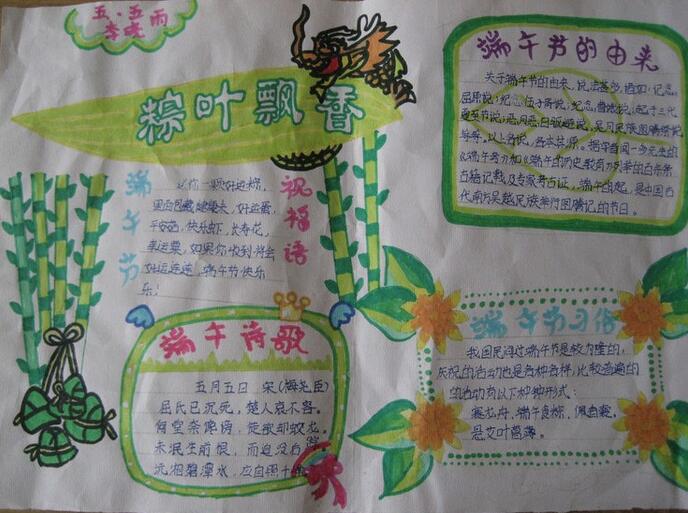 五.五雨
李
粽叶飘香
端午节
祝福语
送你一颗好运粽,
里面包藏健康夫,好运蛋,
平安西,快乐虾,长寿花,
幸运粟,如果你收到将会
好运连连,端午节快乐
乐!
端午诗歌
五月五日 宋(梅尧臣)
屈氏已沉死,楚人哀不容。
何尝奈谗谤,徒欲却蛟龙。
未泯生前恨,而追没后踪
沅湘碧潭水,应自照千
端午节的由来
关于端午节的由来,说法甚多,诸如:纪念
屈原说;纪念伍子胥说;纪念曹娥说;起于三代
夏至节说;恶月恶日驱避说,吴月民族图腾祭说
等等。以上各说,各本其源。据学者闻一多先生的
《端午考》和《端午的历史教育》列举的百余条
古籍记载及专家考古证,端午的起,是中国古
代南方吴越民族举行图腾记的节日。
端午节习俗
我国民间过端午节是较为隆的,
庆祝的活动也是各种各样,比较普遍的
的活动有以下种种形式:
赛龙舟,端午食粽,佩香囊,
悬艾叶菖蒲。